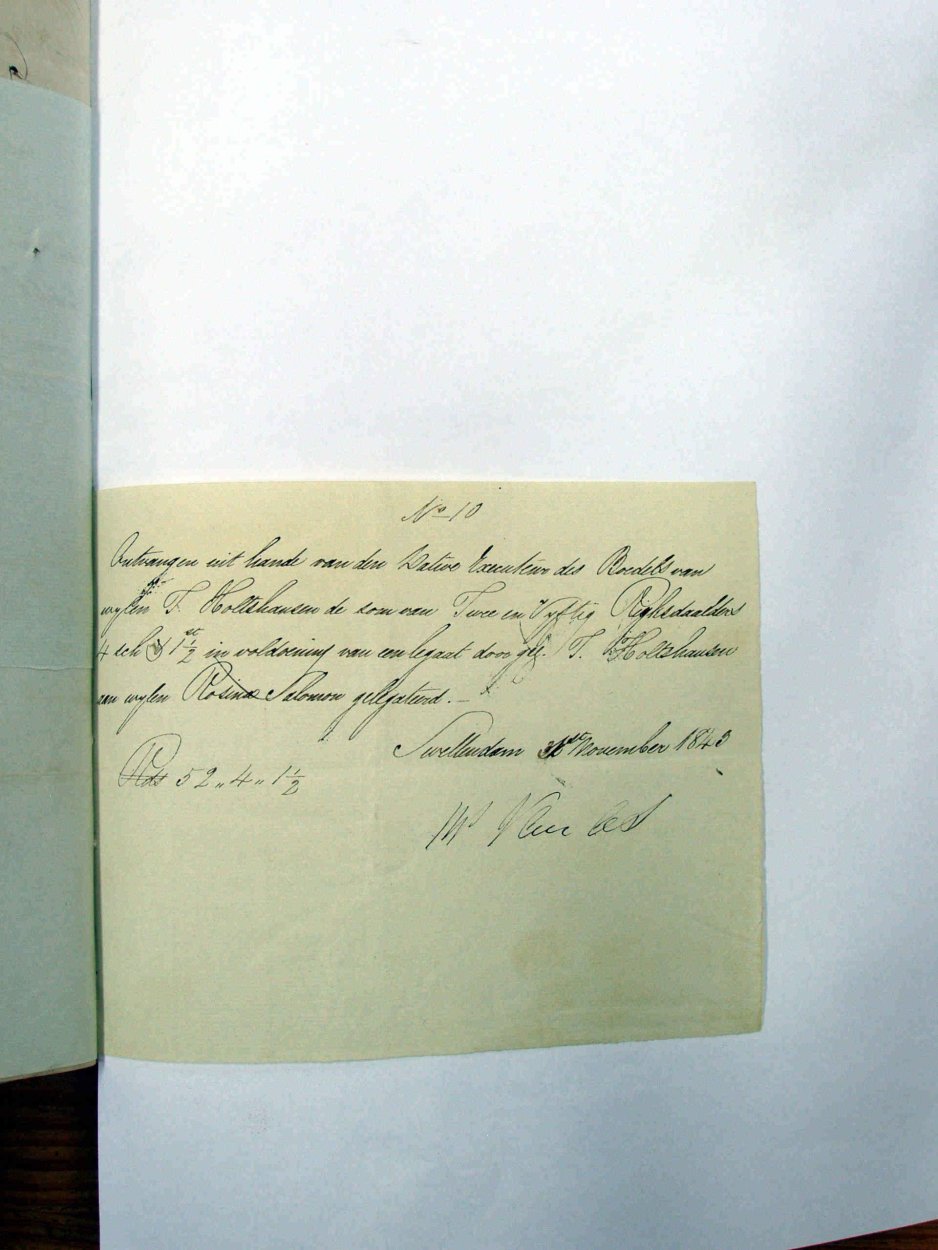 No 10
Ontvangen uit hande van den Dative Executeur des Boedels van
wylen T. Holtshausen de som van Twee en Vyftig Ryksdaalders
4 sch 1 1/2 st in voldoening van een legaat door gen. T. Holtshausen
aan wylen Rosina Salomon gelegateerd. —
Swellendam November 1843
Rds 52 „ 4 „ 1 1/2